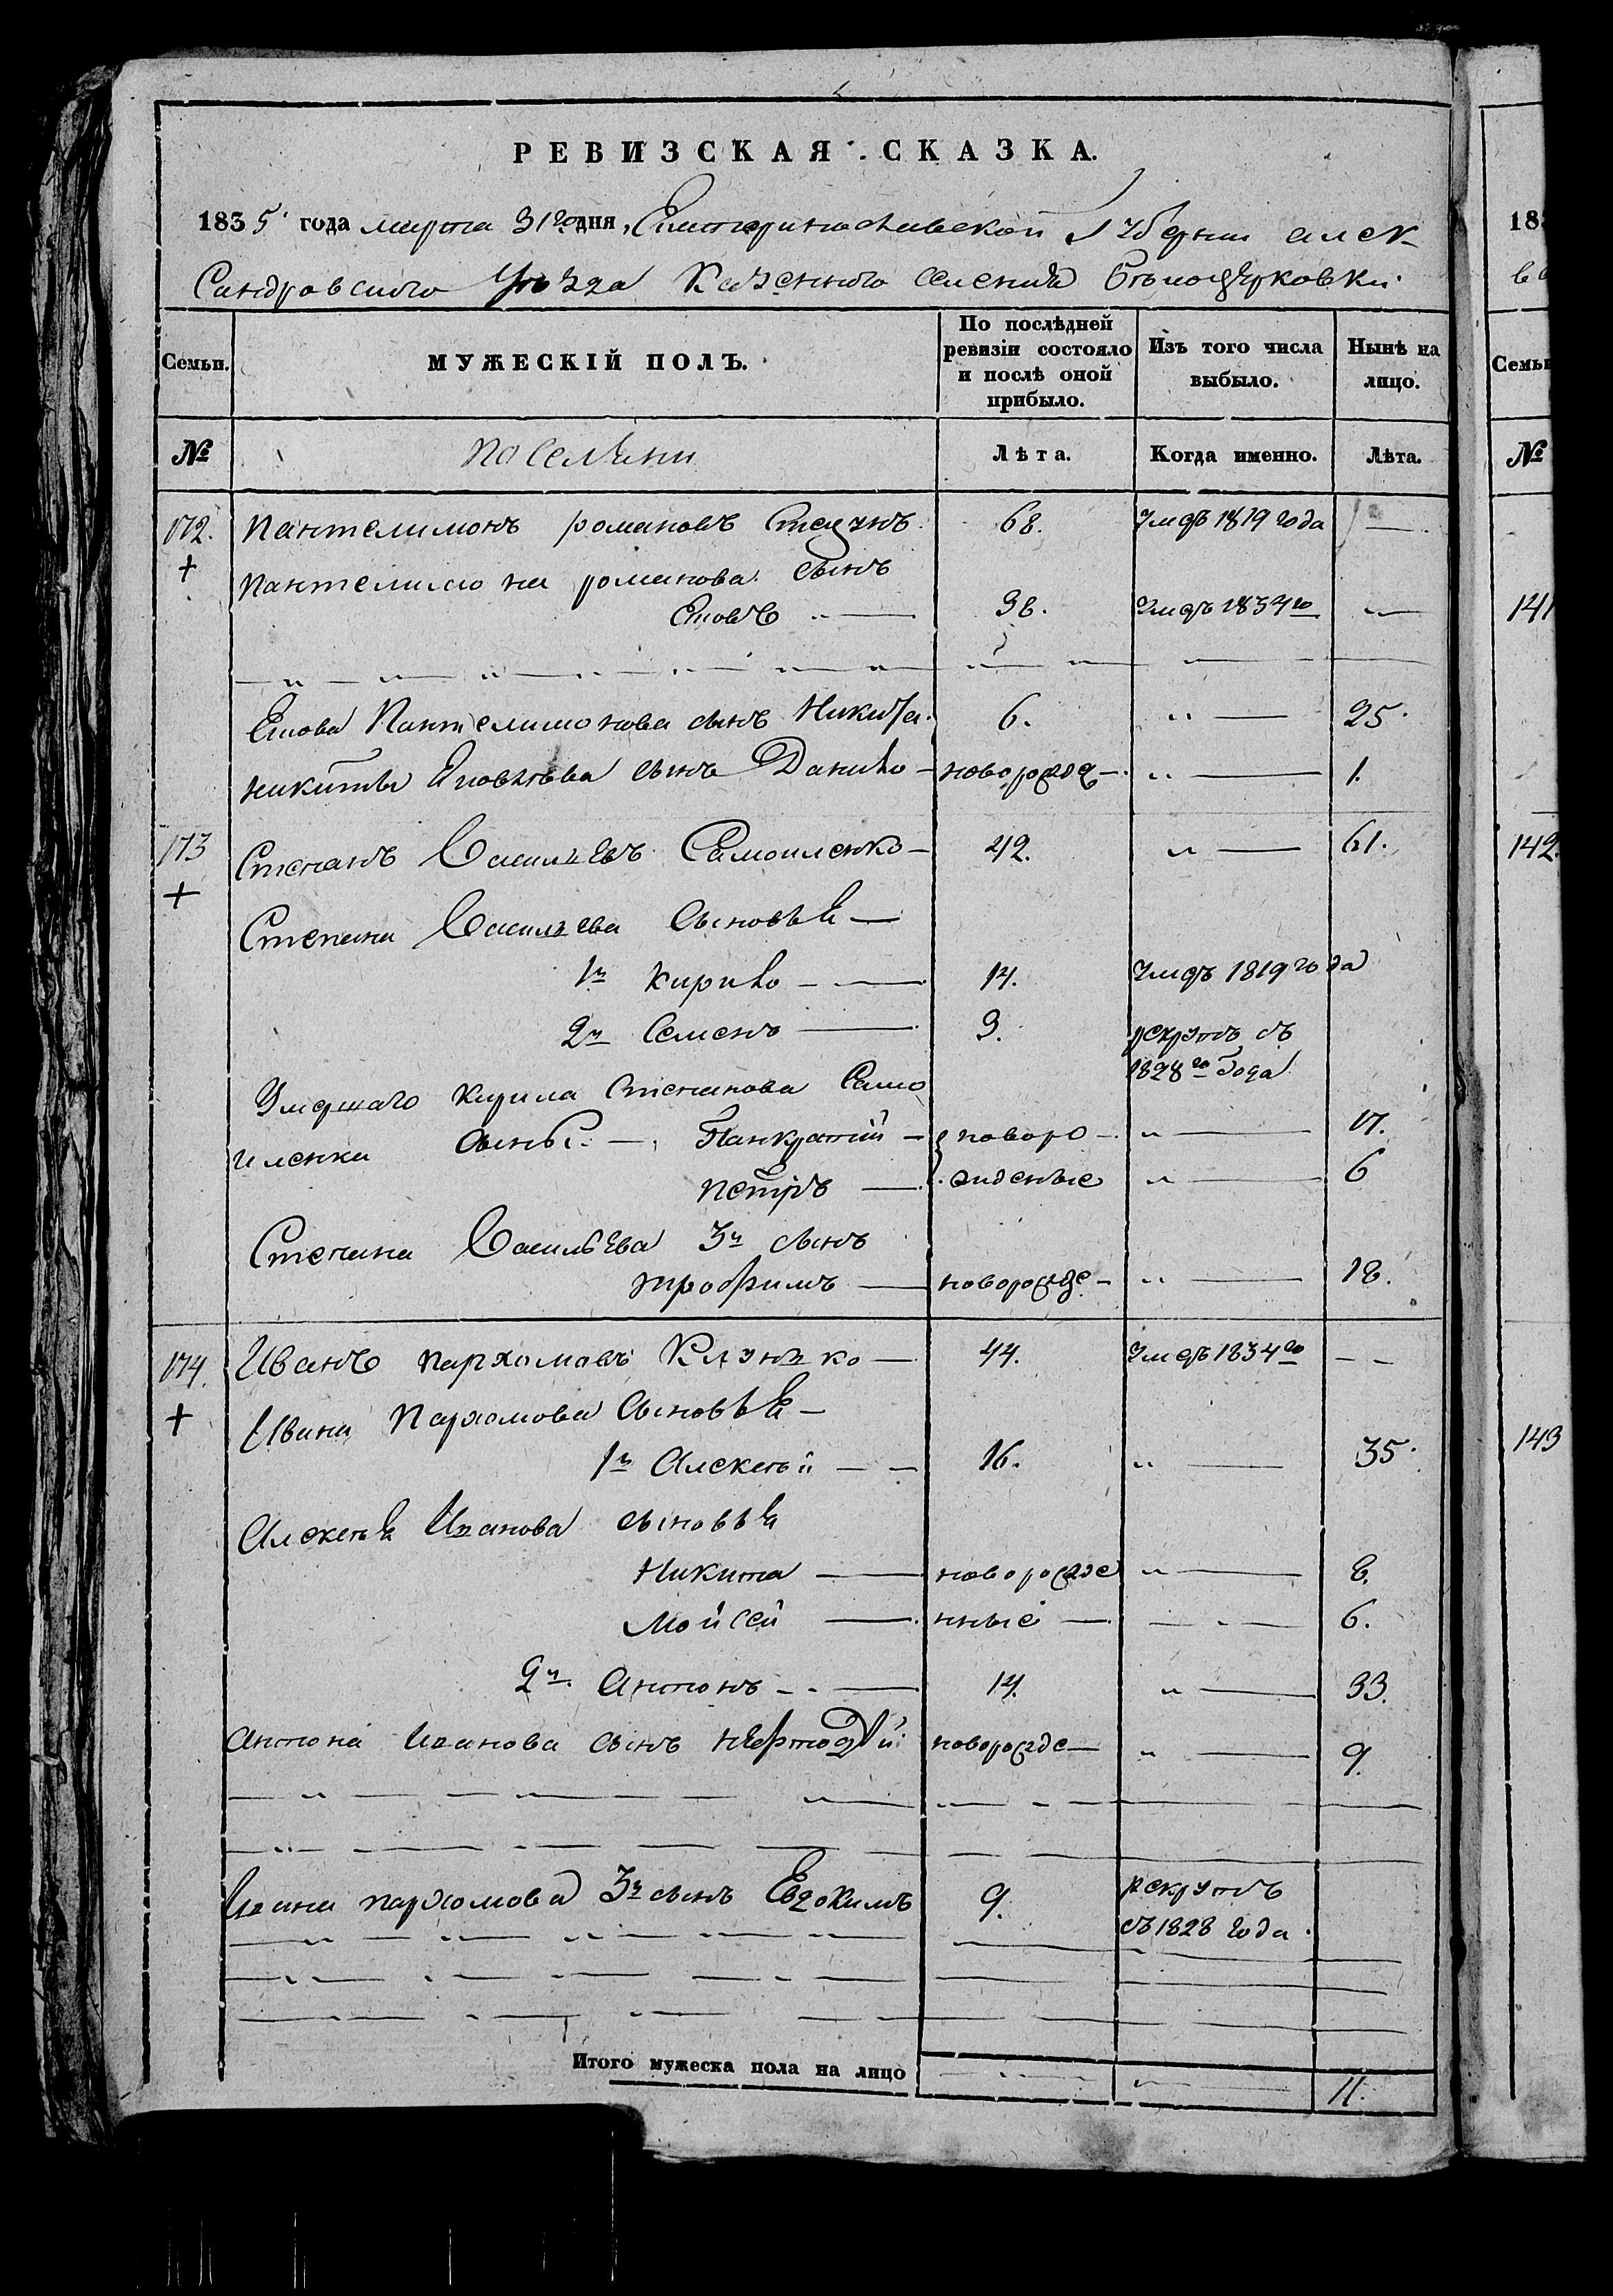 РЕВИЗСКАЯ СКАЗКА.
1835 года марта 31го дня, Екатеринославской Губернии алек-
сандровского Уѣзда Казенного селения Бѣлоцерковки
Семьи. МУЖЕСКІЙ ПОЛЪ. По послѣдней ревизіи состояло и послѣ оной прибыло. Изъ того числа выбыло. Нынѣ на лицо.
№ поселяни Лѣта. Когда именно. Лѣта.
172. Пантелимонъ романовъ 68. умеръ 1819 года —
Пантелимона романова сынъ
38. умеръ 1834го —
Пантелимонова сынъ Никита. 6. " — 25.
никиты сынъ Данило — новорожд — " — 1.
173 Степанъ Васильевъ Самоиленко — 42. " — 61.
Степана Васильева сыновья —
1й Кирило — 14. умеръ 1819 года
2й Семенъ — 9. рекрутъ съ
1828го года
Умершаго Кирила Степанова Само
иленка сыны — Панкратий — новоро — " — 17.
петръ — жденые " — 6
Степана Васильева 3й сынъ
трофимъ — новорожде — " — 18.
174. Иванъ пархомовъ — 44. умеръ 1834го — —
Ивана Пархомова сыновья —
1й Алексѣй — — 16. " — 35.
Алексѣя Иванова сыновья
Никита — новорожде " — 8.
Мойсей — нные — — 6.
2й Антонъ — 14. " — 33.
антона Иванова сынъ новорожде — " — 9.
Ивана пархомова 3й сынъ Евдокимъ 9. рекрутъ
съ 1828 года.
Итого мужеска пола на лицо — " — 11.
183
Семьи
№
141
142.
143